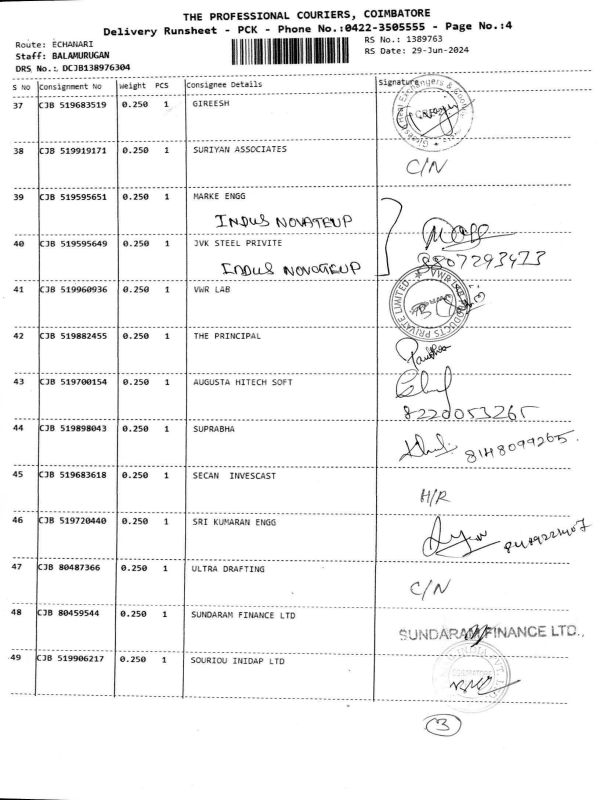 THE PROFESSIONAL COURIERS, COIMBATORE
Delivery Runsheet - PCK - Phone No.:0422-3505555 - Page No.:4
Route: ECHANARI
RS No.: 1389763
Staff: BALAMURUGAN
RS Date: 29-Jun-2024
DRS No.: DCJB138976304
S No Consignment No Weight PCS Consignee Details Signature
37 CJB 519683519 0.250 1 GIREESH
38 CJB 519919171 0.250 1 SURIYAN ASSOCIATES C/N
39 CJB 519595651 0.250 1 MARKE ENGG
INDUS NOVATEUP
40 CJB 519595649 0.250 1 JVK STEEL PRIVITE
INDUS NOVATEUP 8807293473
41 CJB 519960936 0.250 1 VWR LAB
VWR LAB PRODUCTS PRIVATE LIMITED
42 CJB 519882455 0.250 1 THE PRINCIPAL
43 CJB 519700154 0.250 1 AUGUSTA HITECH SOFT
8220053265
44 CJB 519898043 0.250 1 SUPRABHA 8148099265
45 CJB 519683618 0.250 1 SECAN INVESCAST H/R
46 CJB 519720440 0.250 1 SRI KUMARAN ENGG
47 CJB 80487366 0.250 1 ULTRA DRAFTING C/N
48 CJB 80459544 0.250 1 SUNDARAM FINANCE LTD
SUNDARAM FINANCE LTD.,
49 CJB 519906217 0.250 1 SOURIOU INIDAP LTD
COIMBATORE
3